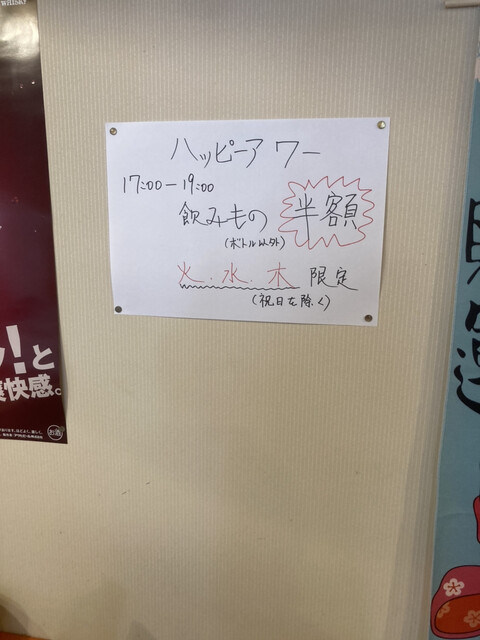 WHISKY
ハッピーアワー
17:00-19:00
飲みもの 半額
(ボトル以外)
火.水.木 限定
(祝日を除く)
!と
快感。
お酒